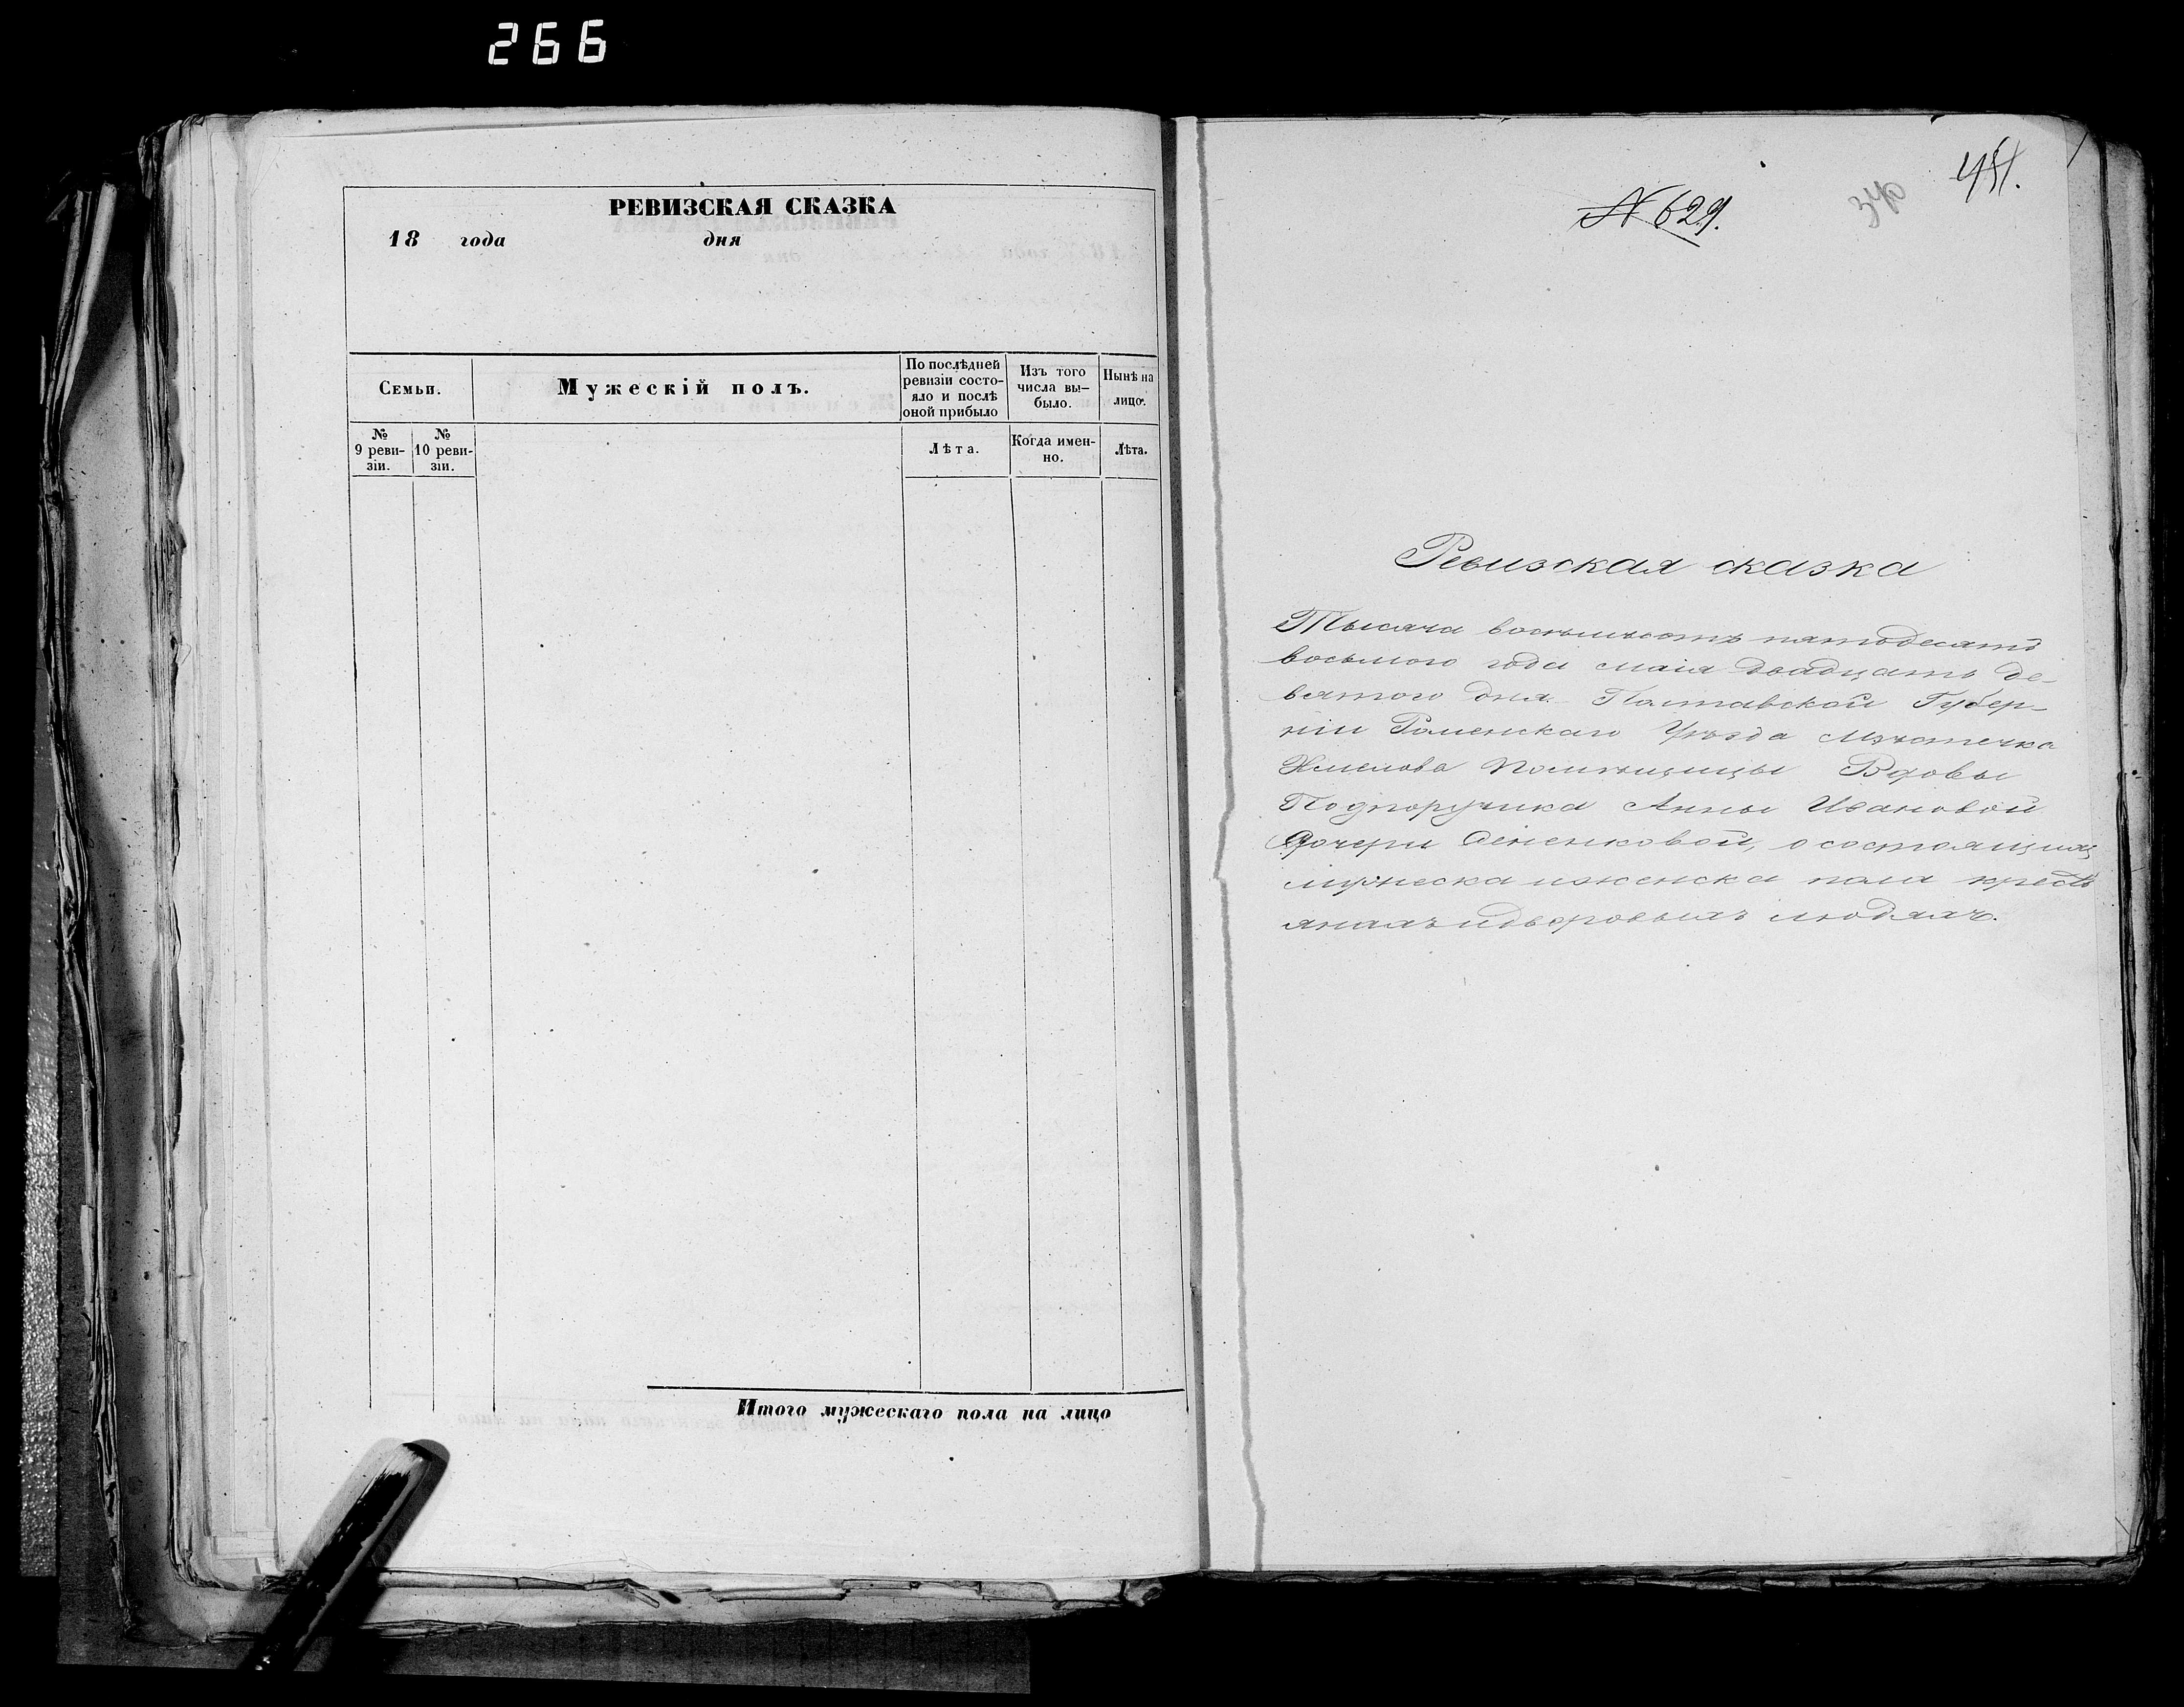 266
РЕВИЗСКАЯ СКАЗКА
18 года дня
Семьи.
Мужескій полъ.
По послѣдней
ревизіи состо-
яло и послѣ
оной прибыло
Изъ того
числа вы-
было.
Нынѣ на
лицо.
№
9 реви-
зіи.
№
10 реви-
зіи.
Лѣта.
Когда имен-
но.
Лѣта.
Итого мужескаго пола на лицо
№ 629.
340
451.
Ревизская сказка
Тысяча восемьсотъ пятодесятъ
восьмого года маія двадцать де-
вятого дня. Полтавской Губер-
ніи Роменскаго Уѣзда мѣстечка
Хмелова Помѣщицы Вдовы
Подпоручика Анны Ивановой
Дочери о состоящихъ
мужеска и женска пола кресть
янахъ и дворовыхъ людяхъ.